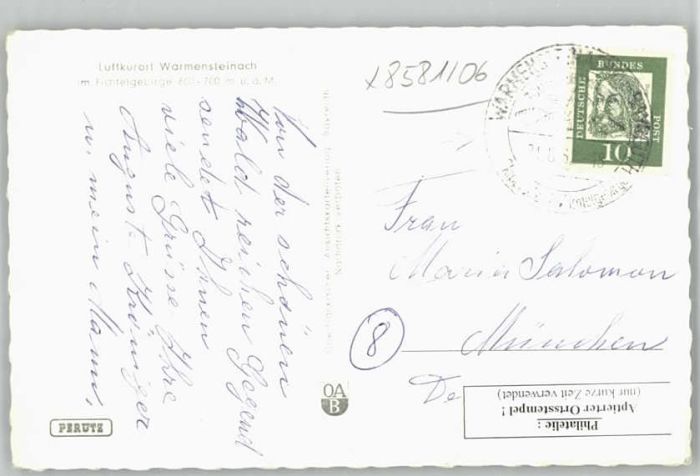 Luftkurort Warmensteinach
m Fichtelgebirge 600-700 m ü. d. M.
x8581106
WARMENST
DEUTSCHE BUNDES POST
10
Von der schönen
Wald reichen Gegend
sendet Ihnen
viele Grüsse Ihre
August. Kröniger
u. mein Mann,
Frau
Maria Salomon
8
München
De
PERUTZ
OA
B
Philatelie :
Aptierter Ortsstempel !
(nur kurze Zeit verwendet)